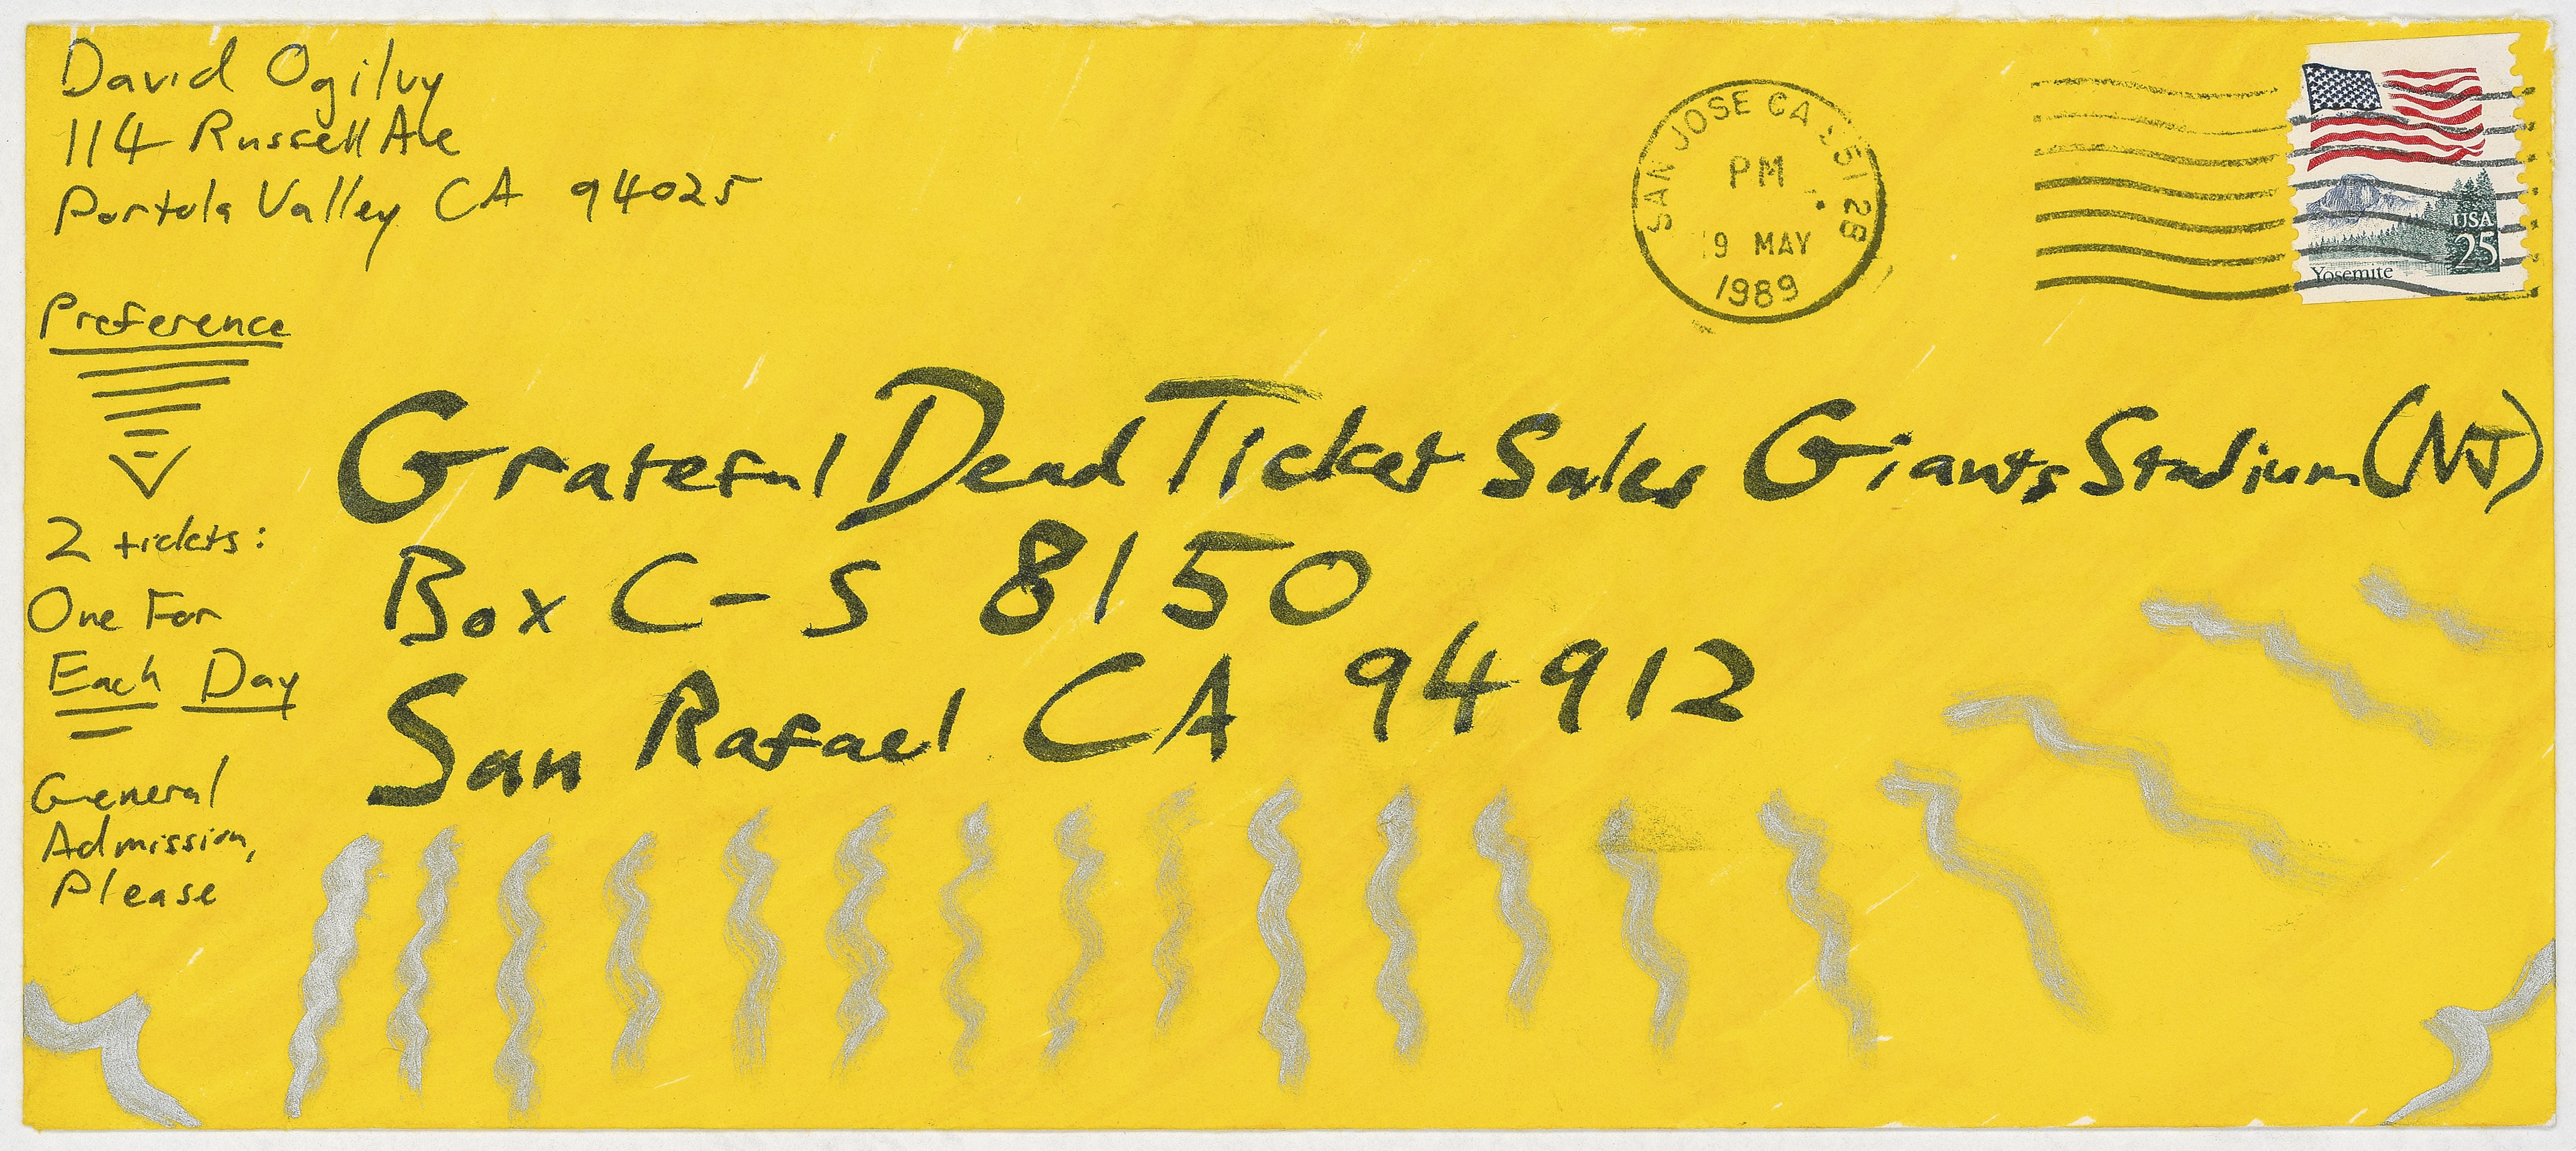 David Ogilvy
114 Russell Ave
Portola Valley CA 94025
SAN JOSE CA 951 28
PM
19 MAY
1989
USA
25
Yosemite
Preference
2 tickets:
One For
Each Day
General
Admission,
Please
Grateful Dead Ticket Sales Giants Stadium (NJ)
Box C-S 8150
San Rafael CA 94912